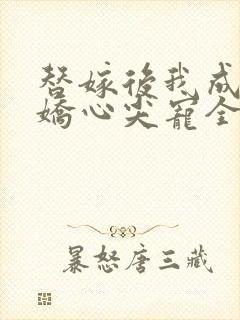 替嫁後我成
嬌心尖寵全
暴怒唐三藏